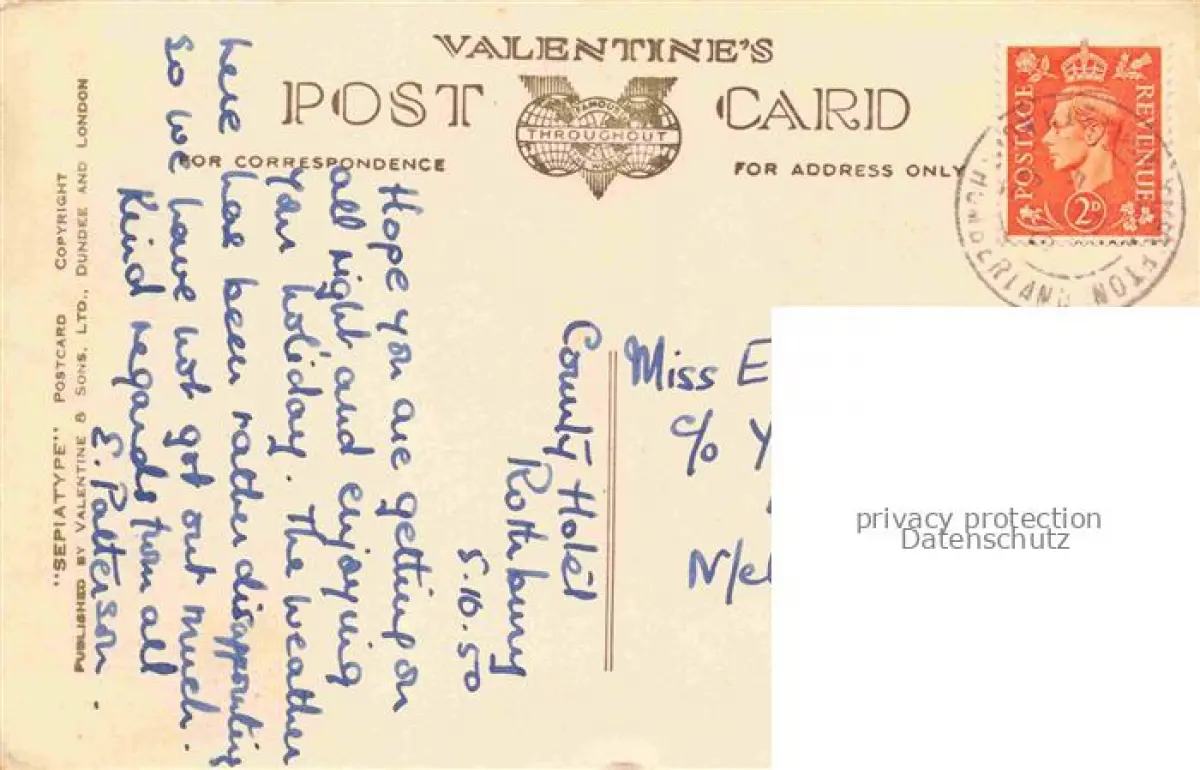 VALENTINE'S
POST CARD
FAMOUS
THROUGHOUT
FOR CORRESPONDENCE
FOR ADDRESS ONLY
POSTAGE REVENUE
2D
County Hotel
Rothbury
5.10.50
Hope you are getting on
all right and enjoying
your holiday. The weather
here has been rather disappointing
so we have not got out much.
Kind regards from all
E. Patterson
Miss E
c/o Y
N/c
"SEPIATYPE" POSTCARD COPYRIGHT
PUBLISHED BY VALENTINE & SONS, LTD., DUNDEE AND LONDON
privacy protection
Datenschutz